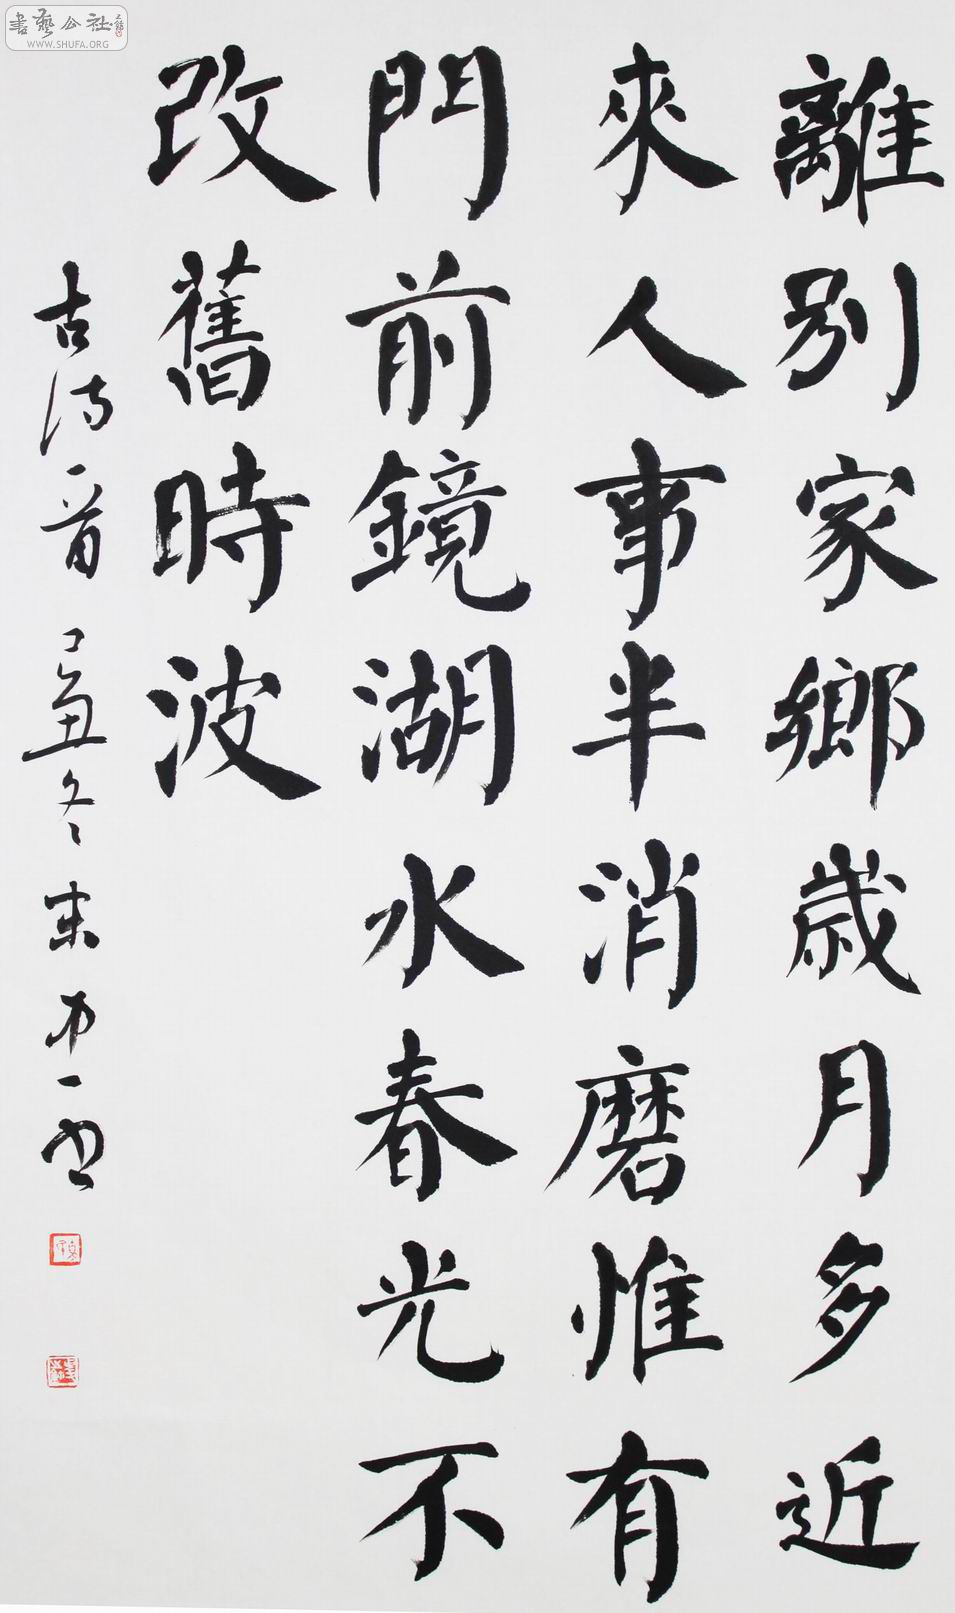 離別家鄉歲月多近
來人事半消磨惟有
門前鏡湖水春光不
改舊時波
古诗一首 己丑冬末 中一书
書藝公社
WWW.SHUFA.ORG